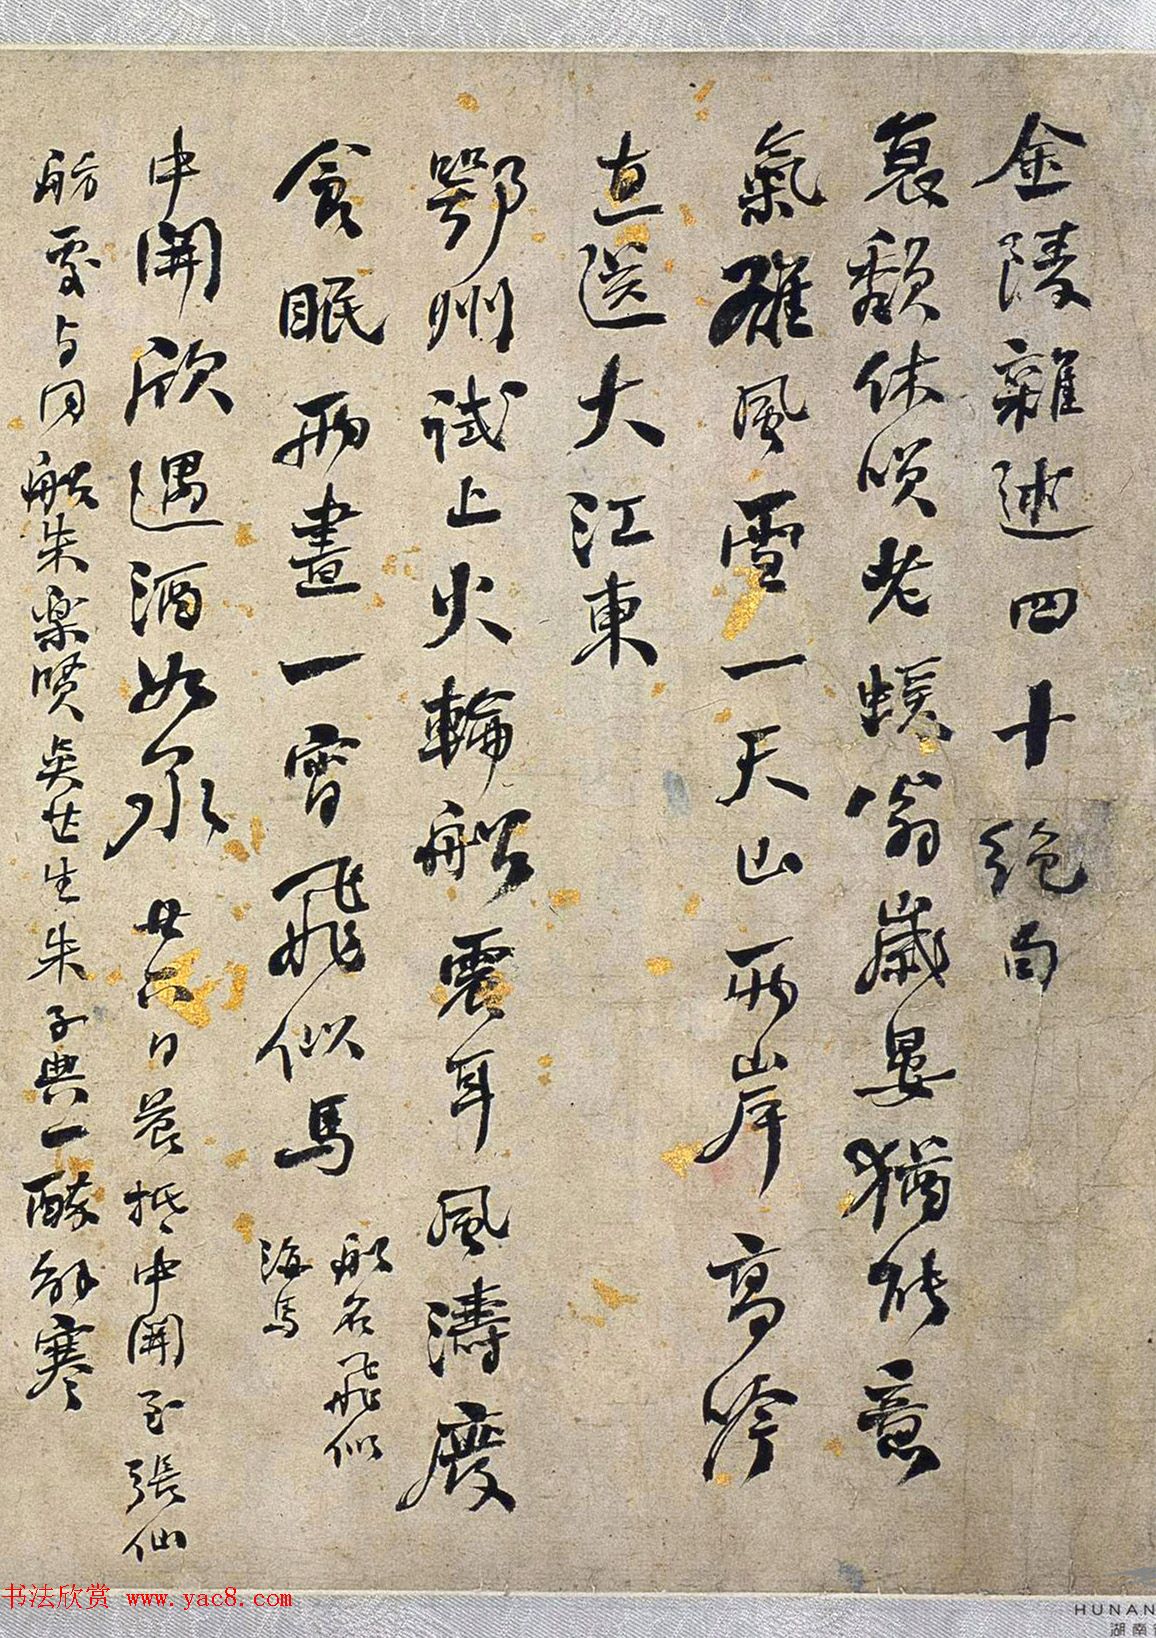 金陵雜述四十絕句
衰頹休嘆老蝯翁歲晏猶能意
氣雄風雪一天山兩岸高吟
直送大江東
鄂州試上火輪船震耳風濤廢
食眠兩晝一宵飛似馬
船名飛似
海馬
中關欣遇酒如泉廿六日晨抵中關至張仙
舫處与同船朱樂賢吳廿生朱子典一醉解寒
书法欣赏 www.yac8.com
HUNAN
湖南省